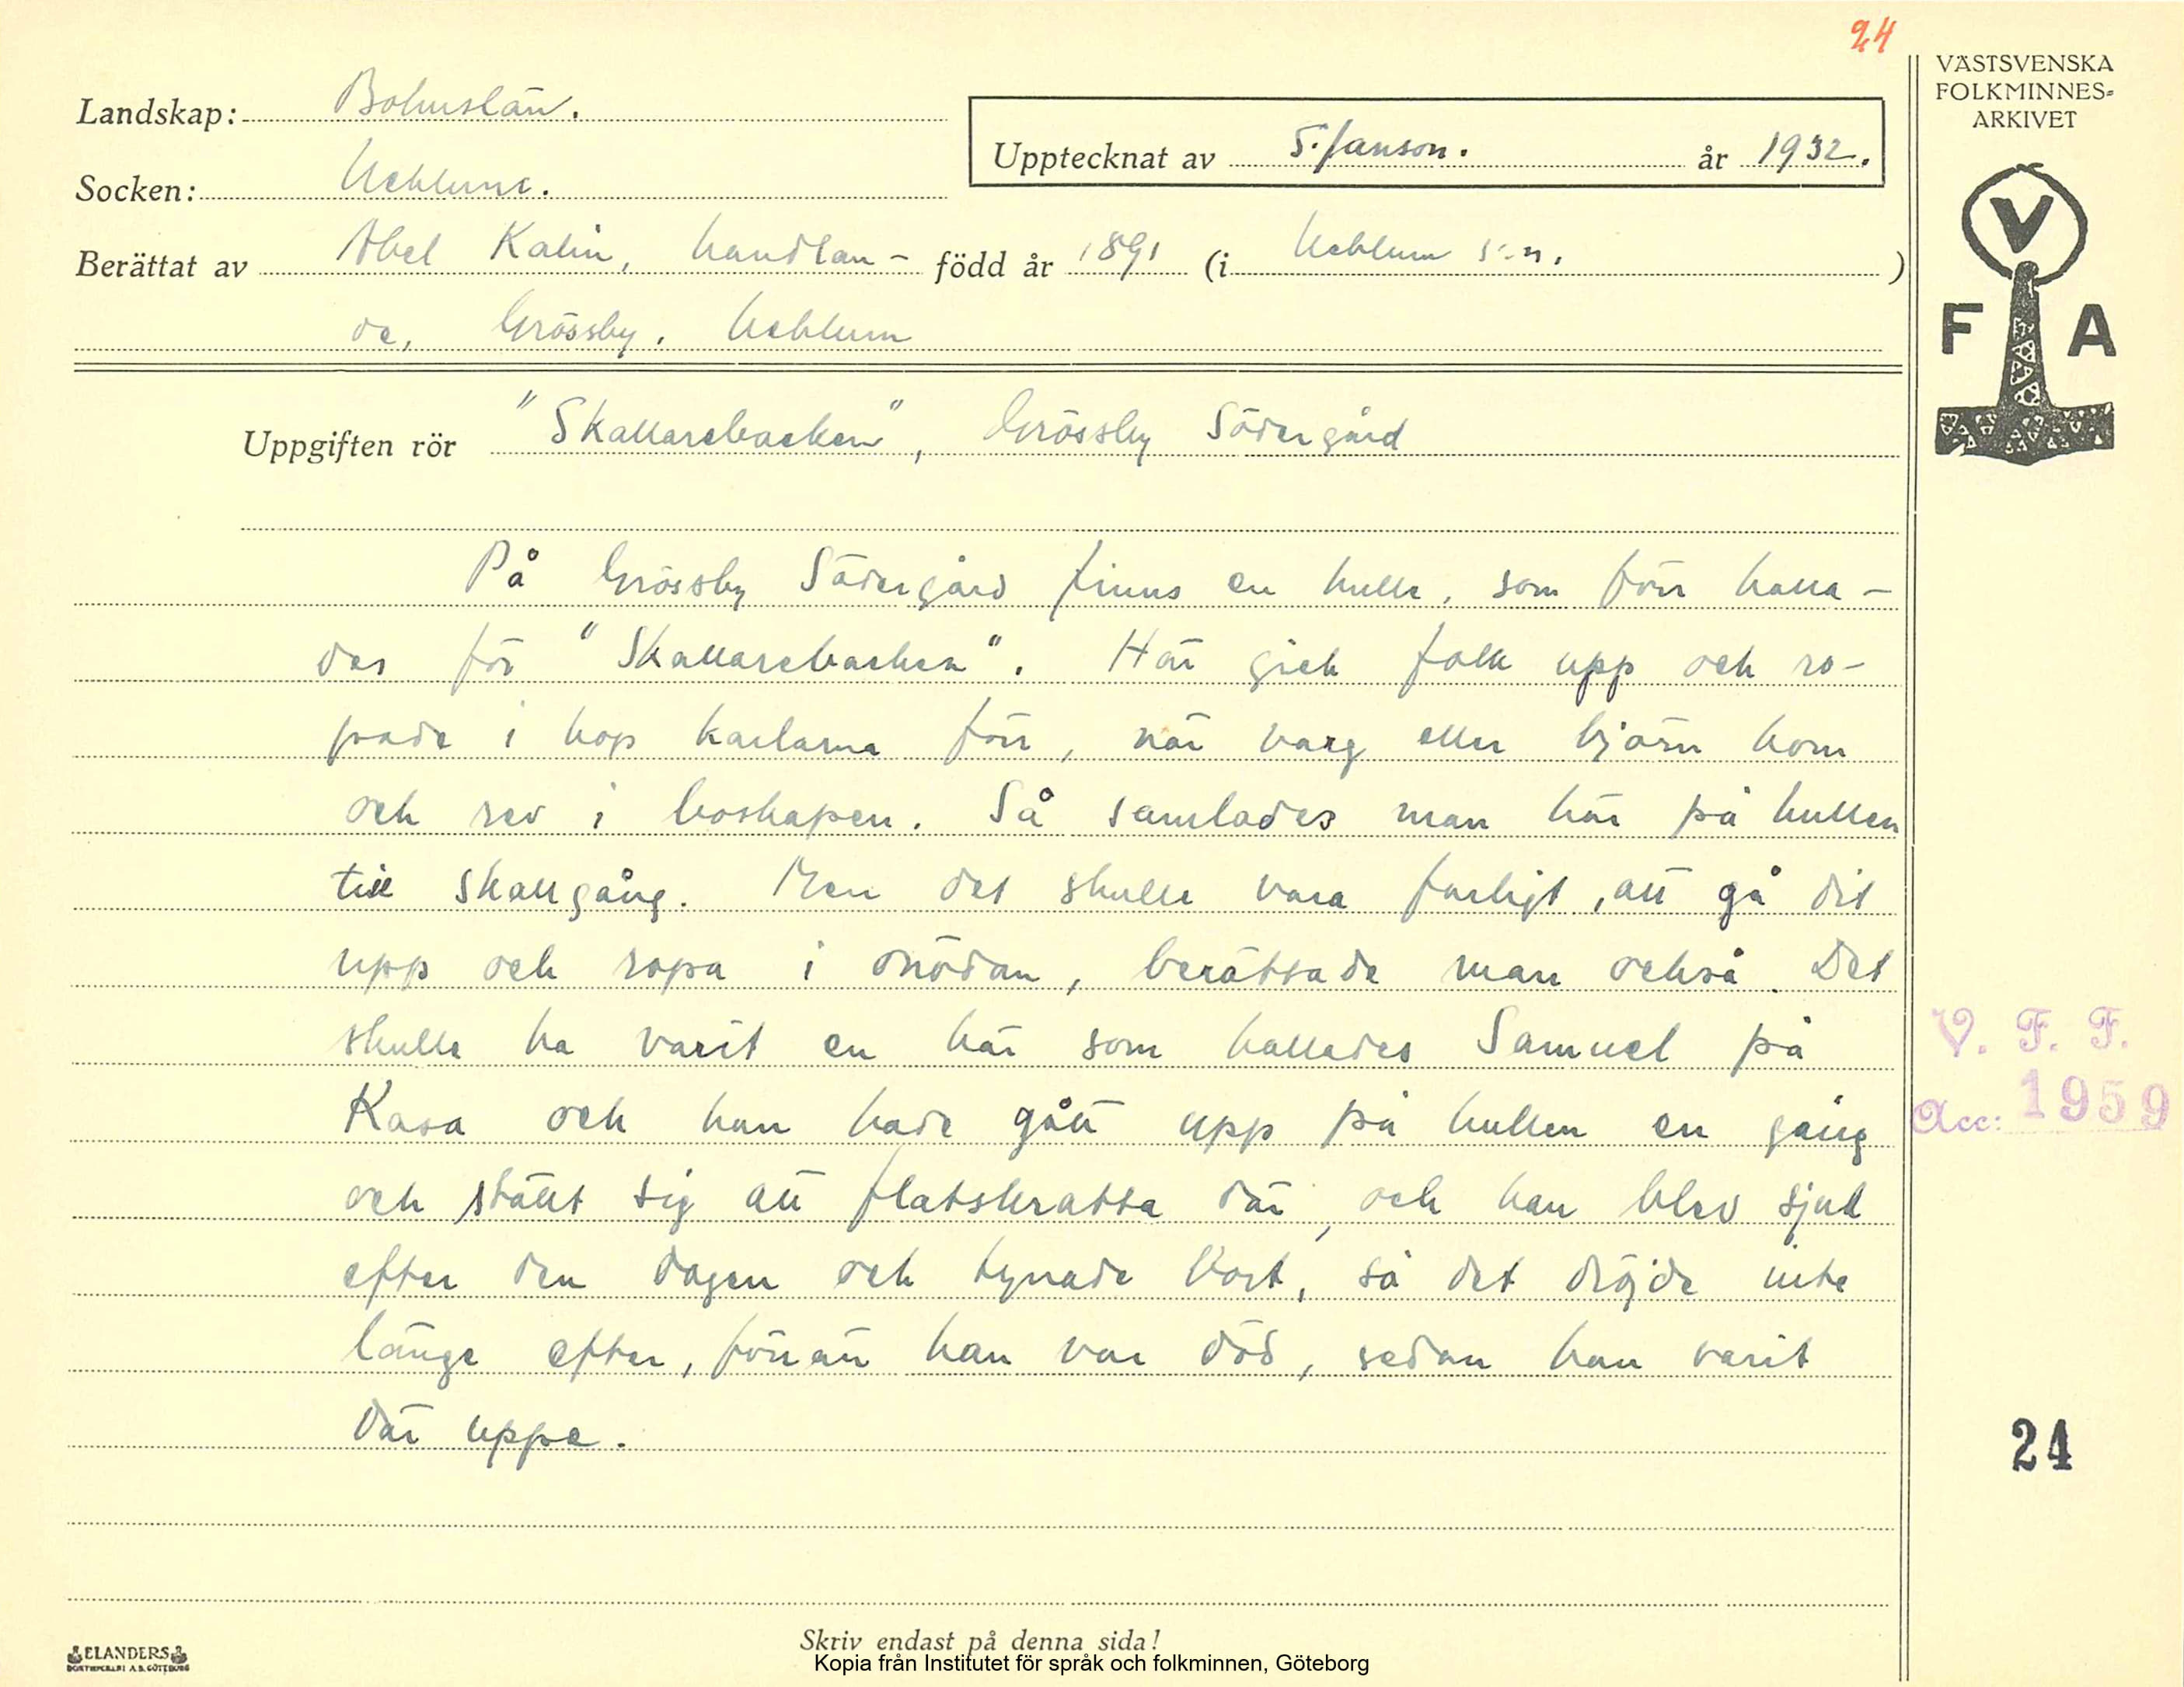 24
VÄSTSVENSKA
FOLKMINNES-
ARKIVET
Landskap: Bohuslän.
Upptecknat av S. Janson. år 1932.
Socken: Ucklum.
Berättat av Abel Kalin, handlan- född år 1891 (i Ucklum s:n. )
de, Grössby, Ucklum
V
F A
Uppgiften rör "Skallarebacken", Grössby Södergård
På Grössby Södergård finns en kulle, som förr kalla-
des för "Skallarebacken". Här gick folk upp och ro-
pade i hop karlarna förr, när varg eller björn kom
och rev i boskapen. Så samlades man här på kullen
till skallgång. Men det skulle vara farligt, att gå dit
upp och ropa i onödan, berättade man också. Det
skulle ha varit en här som kallades Samuel på
Kasa och han hade gått upp på kullen en gång
och ställt sig att flatskratta där, och han blev sjuk
efter den dagen och tynade bort, så det dröjde inte
länge efter, förrän han var död, sedan han varit
där uppe.
V. F. F.
Acc: 1959
24
ELANDERS
Skriv endast på denna sida!
Kopia från Institutet för språk och folkminnen, Göteborg